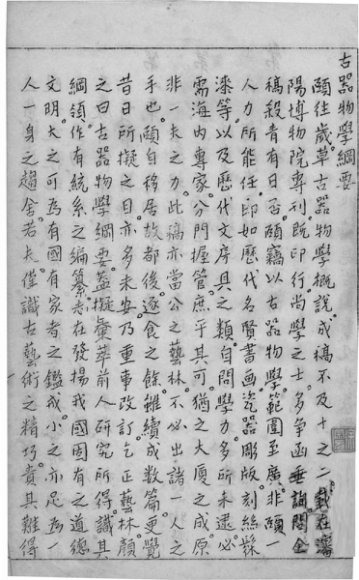 古器物學綱要
頤往歲草古器物學概說成稿不及十之二載在瀋
陽博物院專刊既印行尚學之士多爭函垂詢問全
稿殺青有日否頤竊以古器物學範圍至廣非頤一
人力所能任即如歷代名賢書画瓷器彫版刻絲髹
漆等以及歷代文房具之類自問學力多所未逮必
需海內專家分門握管庶乎其可猶之大厦之成原
非一夫之力此稿亦當公之藝林不必出諸一人之
手也頤自移居故都後逐食之餘雖續成數篇更覺
昔日所擬之目亦多未安乃重事改訂乞正藝林顏
之曰古器物學綱要蓋擬薈萃前人研究所得識其
綱領作有統系之編纂志在發揚我國固有之道德
文明大之可為有國有家者之鑑戒小之亦足為一
人一身之趨舍若夫僅識古藝術之精巧貴其難得